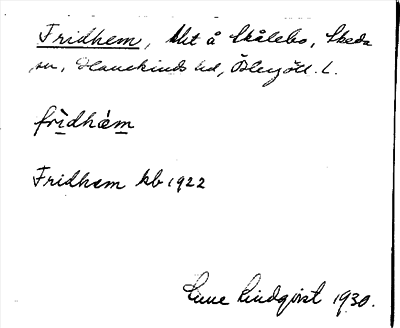 Fridhem, lht å Skålebo, Skeda
sn, Hanekinds hd, Östergötl. L.
frìdhä́m
Fridhem kb 1922
Sune Lindqvist 1930.